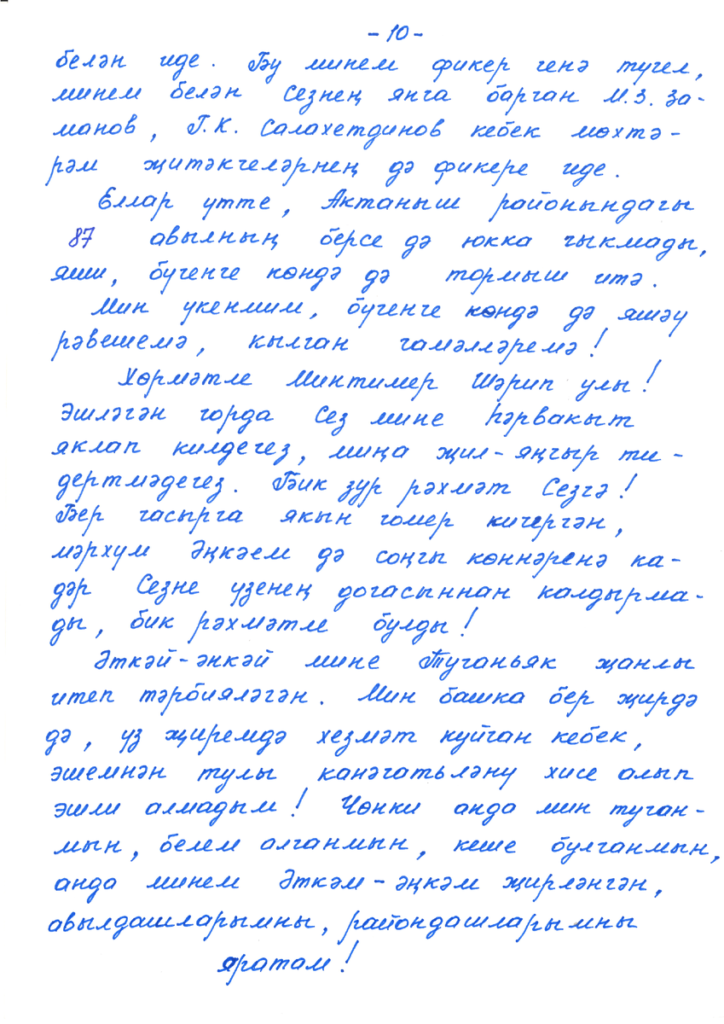 - 10 -
белән иде. Бу минем фикер генә түгел,
минем белән Сезнең янга барган М.З. За-
манов, Г.К. Салахетдинов кебек мөхтә-
рәм җитәкчеләрнең дә фикере иде.
Еллар үтте, Актаныш районындагы
87 авылның берсе дә юкка чыкмады,
яши, бүгенге көндә дә тормыш итә.
Мин үкенмим, бүгенге көндә дә яшәү
рәвешемә, кылган гамәлләремә!
Хөрмәтле Минтимер Шәрип улы!
Эшләгән чорда Сез мине һәрвакыт
яклап килдегез, миңа җил-яңгыр ти-
дертмәдегез. Бик зур рәхмәт Сезгә!
Бер гасырга якын гомер кичергән,
мәрхүм Әңкәем дә соңгы көннәренә ка-
дәр Сезне үзенең догасыннан калдырма-
ды, бик рәхмәтле булды!
Әткәй-әнкәй мине Туганьяк җанлы
итеп тәрбияләгән. Мин башка бер җирдә
дә, үз җиремдә хезмәт куйган кебек,
эшемнән тулы канәгатьләнү хисе алып
эшли алмадым! Чөнки анда мин туган-
мын, белем алганмын, кеше булганмын,
анда минем Әткәм-әңкәм җирләнгән,
авылдашларымны, райондашларымны
яратам!